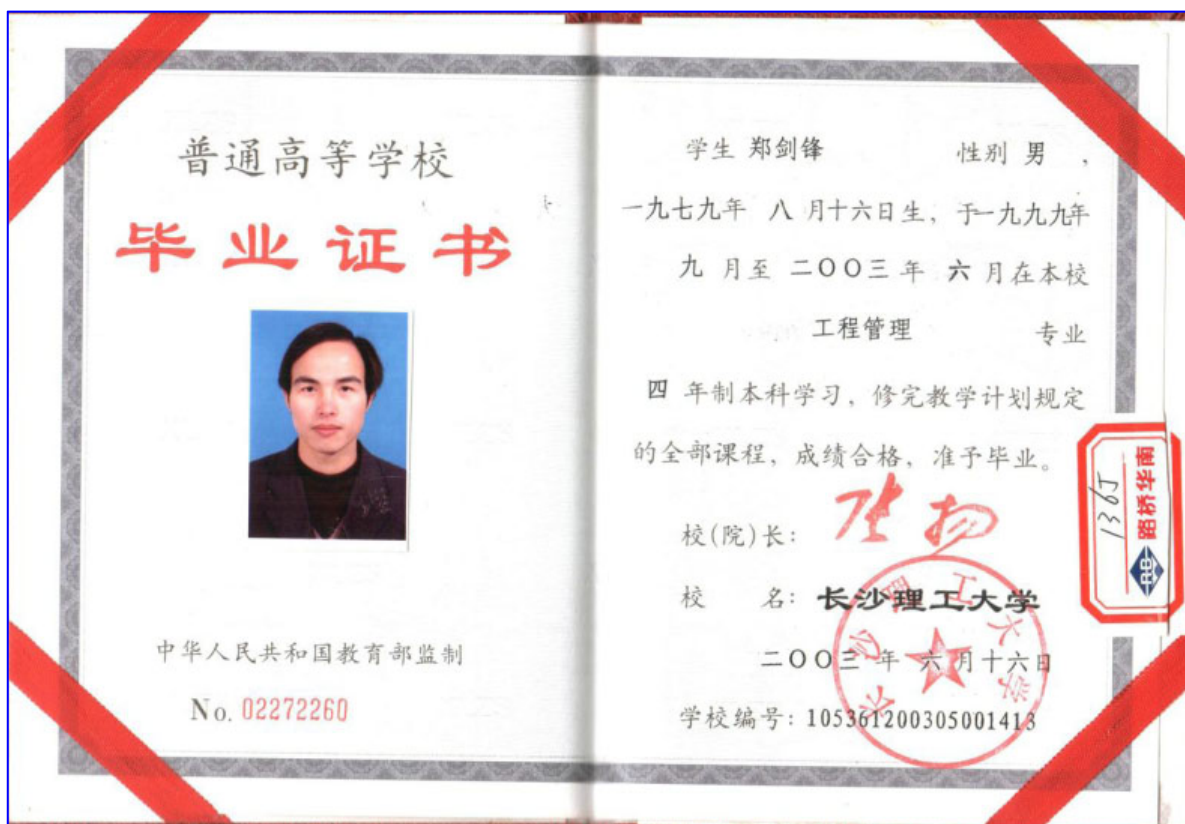 普通高等学校
毕业证书
中华人民共和国教育部监制
No. 02272260
学生 郑剑锋 性别 男 ,
一九七九年 八 月十六日生, 于一九九九年
九 月至 二〇〇三 年 六 月在本校
工程管理 专业
四 年制本科学习, 修完教学计划规定
的全部课程, 成绩合格, 准予毕业。
校(院)长:
校 名: 长沙理工大学
二〇〇三 年 六 月十六日
学校编号: 105361200305001413
长沙理工大学
路桥华南
1365
RB